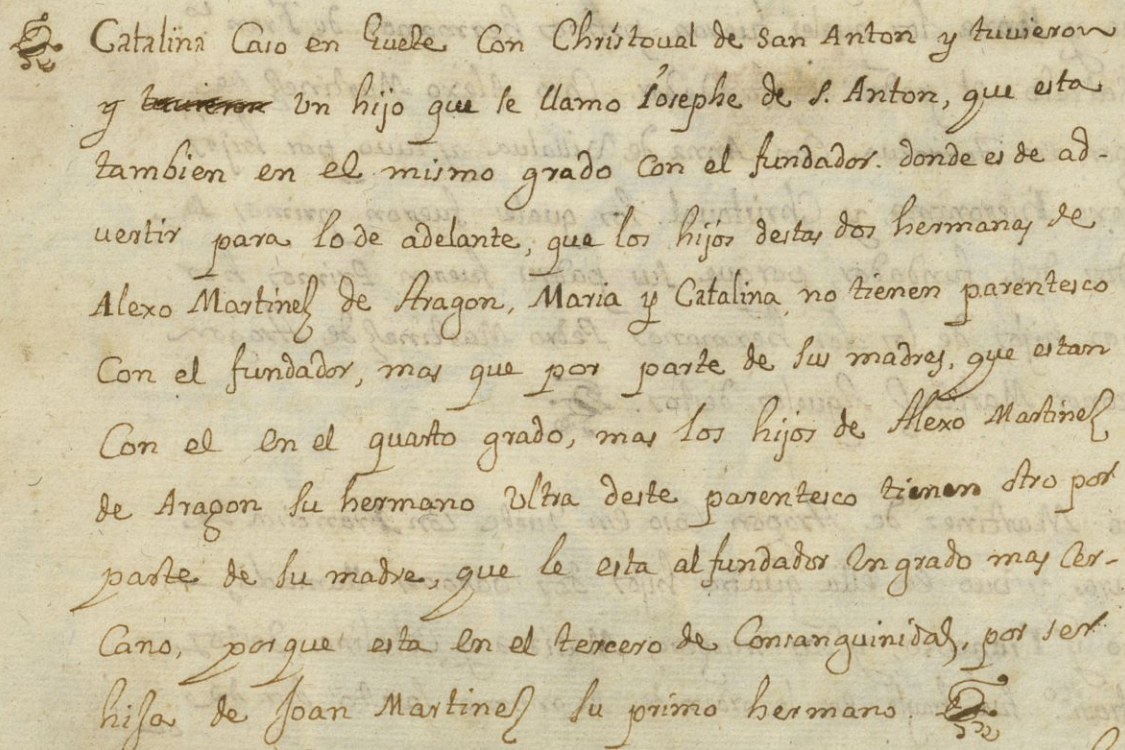 Catalina Caso en Guete Con Christoval de San Anton y tuvieron
y tuvieron Vn hijo que se llamo Iosephe de s. Anton, que esta
tambien en el mismo grado con el fundador. donde es de ad-
vertir para lo de adelante, que los hijos destas dos hermanas de
Alexo Martinez de Aragon, Maria y Catalina no tienen parentesco
Con el fundador, mas que por parte de sus madres, que estan
Con el en el quarto grado, mas los hijos de Alexo Martinez
de Aragon su hermano Vltra deste parentesco tienen otro por
parte de su madre, que le esta al fundador en grado mas cer-
cano, porque esta en el tercero de Consanguinidad, por ser
hija de Joan Martinez su primo hermano.